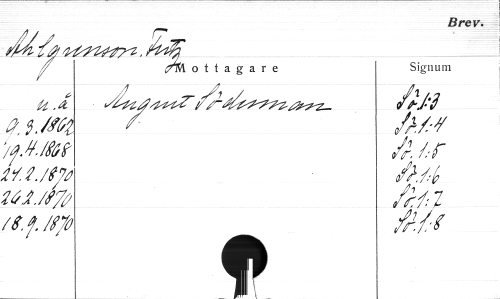 Brev.
Ahlgrenson, Fritz
Mottagare Signum
u.å August Söderman Sö.1:3
9.3.1862 Sö.1:4
19.4.1868 Sö.1:5
21.2.1870 Sö.1:6
26.2.1870 Sö.1:7
18.9.1870 Sö.1:8